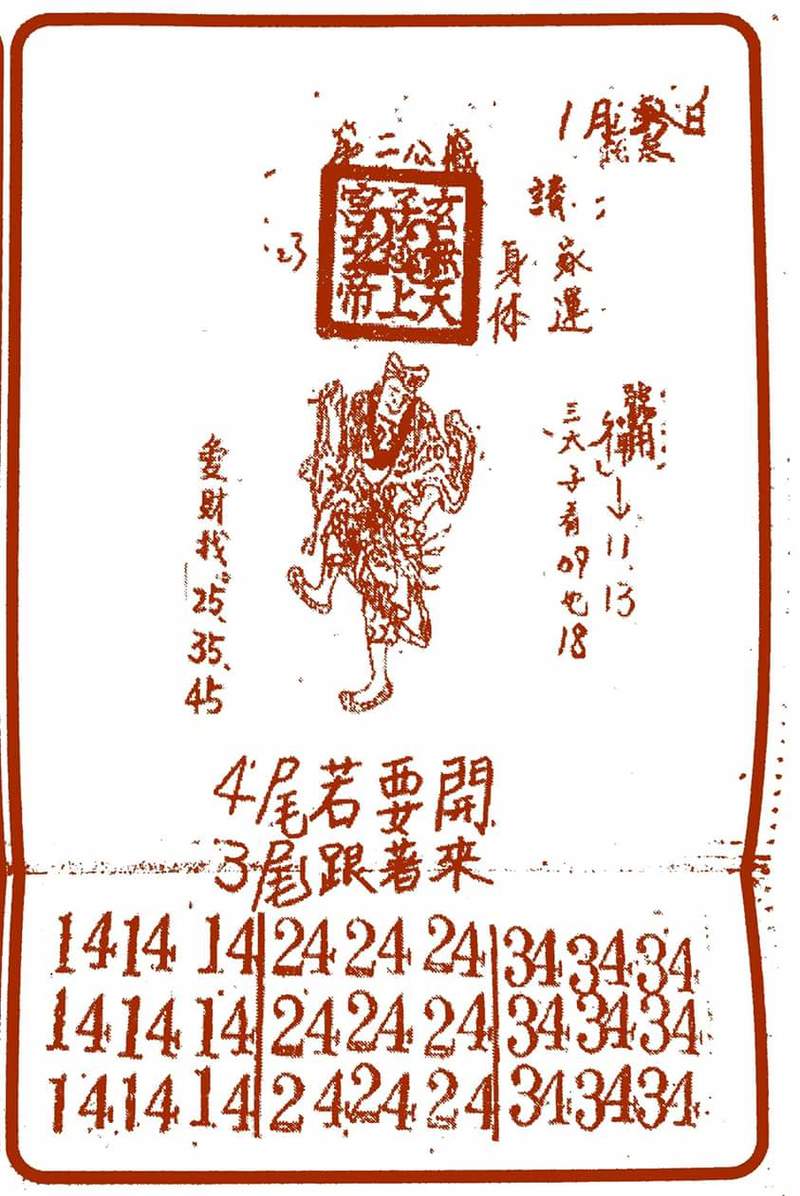 1月
日
第二公
玄無天
子極上
宮玄帝
請:
家運
身体
23
→11.13
三六子看09也18
愛財找25.35.45
4尾若要開
3尾跟著來
14 14 14 24 24 24 34 34 34
14 14 14 24 24 24 34 34 34
14 14 14 24 24 24 34 34 34